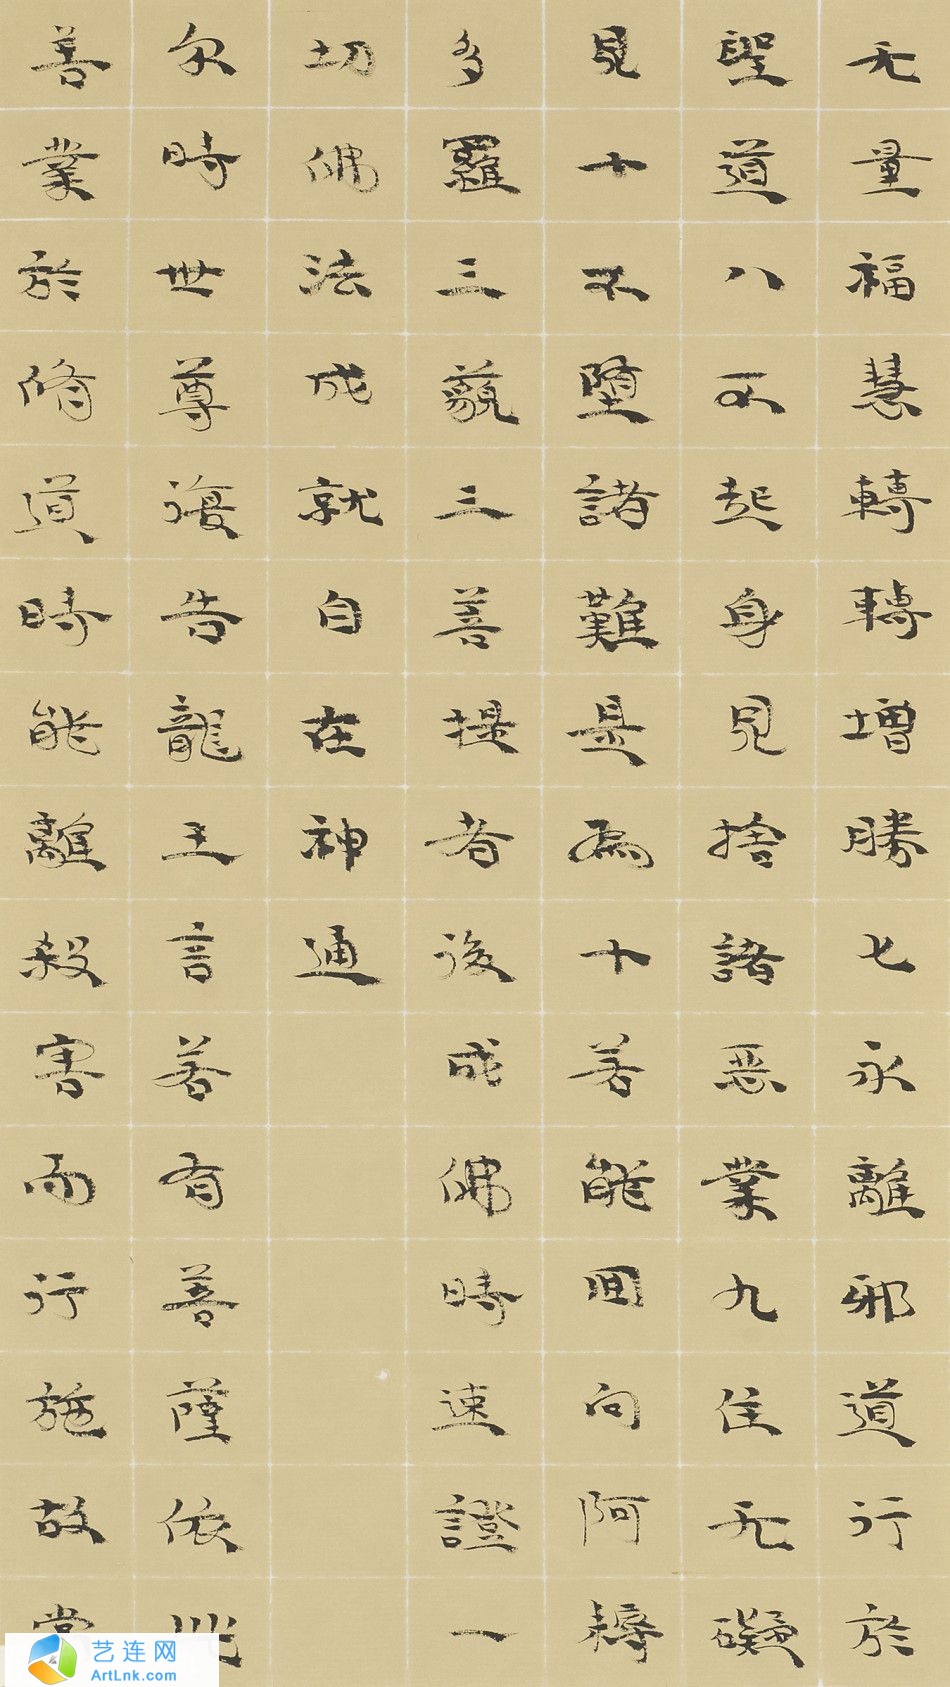 无量福慧轉轉增勝七永離邪道行於
聖道八不起身見捨諸惡業九住无礙
見十不墮諸難是爲十若能回向阿耨
多羅三藐三菩提者後成佛時速證一
切佛法成就自在神通
尔時世尊復告龍王言若有菩薩依此
善業於脩道時能離殺害而行施故常
艺连网
ArtLnk.com